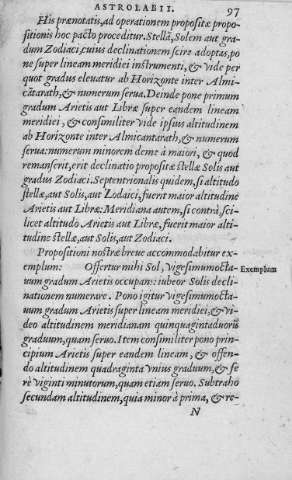 ASTROLABII. 97
His prænotatis, ad operationem propositæ propo-
sitionis hoc pacto proceditur. Stellã, Solem aut gra-
dum Zodiaci, cuius declinationem scire adoptas, po
ne super lineam meridiei instrumenti, & vide per
quot gradus eleuatur ab Horizonte inter Almi-
cãtarath, & numerum serua. Deinde pone primum
gradum Arietis aut Libræ super eandem lineam
meridiei, & consimiliter vide ipsius altitudinem
ab Horizonte inter Almicantarath, & numerum
serua: numerum minorem deme à maiori, & quod
remanserit, erit declinatio propositæ stellæ Solis aut
gradus Zodiaci. Septentrionalis quidem, si altitudo
stellæ, aut Solis, aut Zodaici, fuerit maior altitudine
Arietis aut Libræ: Meridiana autem, si contrà, sci-
licet altitudo Arietis aut Libræ, fuerit maior alti-
tudine stellæ, aut Solis, aut Zodiaci.
Propositioni nostræ breue accommodabitur ex-
emplum: Offertur nuhi Sol, vigesimumocta-
Exemplum
uum gradum Arietis occupans: iubeor Solis decli-
nationem numerare. Pono igitur vigesimumocta-
uum gradum Arietis super lineam meridiei, & vi-
deo altitudinem meridianam quinquagintaduorũ
graduum, quam seruo. Item consimiliter pono prin-
cipium Arietis super eandem lineam, & offen-
do altitudinem quadraginta vnius graduum, & fe
rè viginti minutorum, quam etiam seruo. Subtraho
secundam altitudinem, quia minor à prima, & re-
N